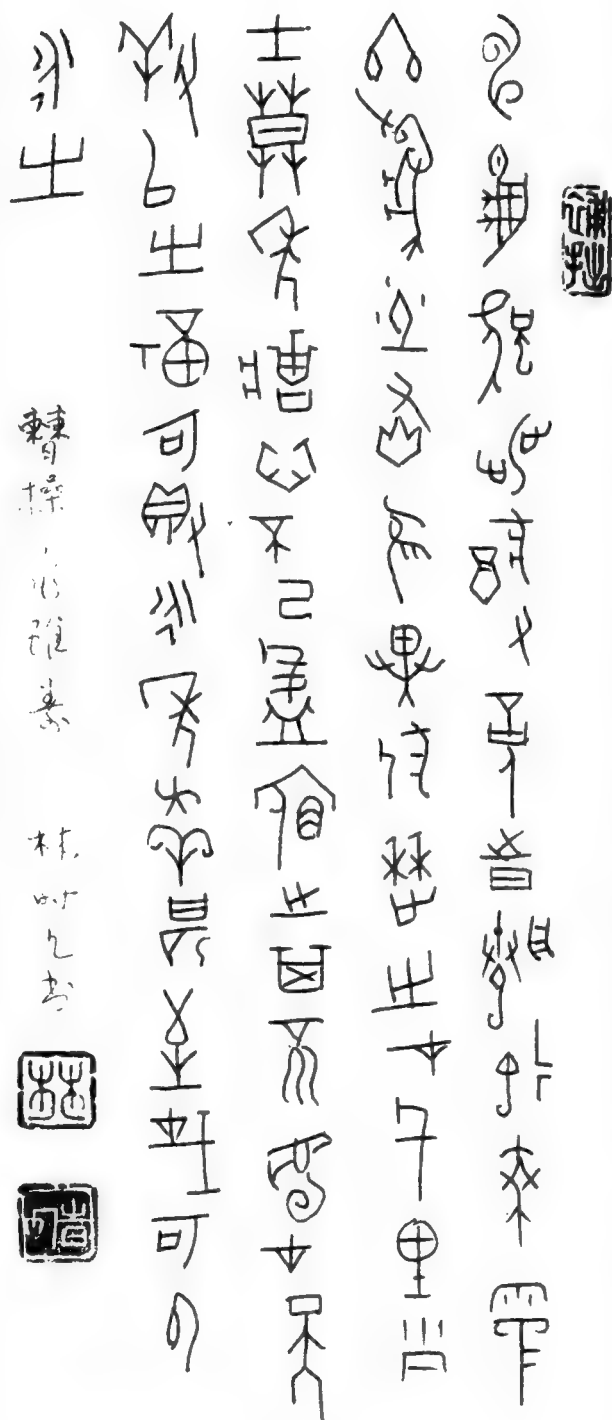 神龜雖壽猶有竟時騰蛇乘霧
終為土灰老驥伏櫪志在千里烈
士暮年壯心不已盈縮之期不但在天
養怡之福可得永年幸甚至哉歌以
詠志
曹操龜雖壽
林